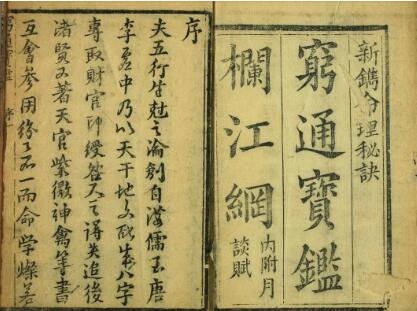 新鐫命理秘訣
窮通寶鑑
欄江網
內附月談賦
序
夫五行生尅之論創自漢儒至唐
李虛中乃以天干地支配成八字
專取財官印綬人之得失追後
諸賢又著天官紫微神禽等書
互會參用紛不一而命學燦若